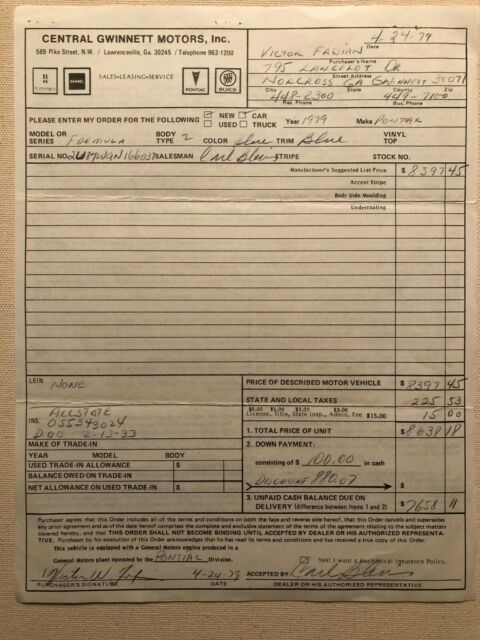 CENTRAL GWINNETT MOTORS, Inc.
589 Pike Street, N.W. / Lawrenceville, Ga. 30245 / Telephone 962-1200
SALES-LEASING-SERVICE
GMC
PONTIAC
BUICK
4-24-79
Date
VICTOR FABIAN
Purchaser's Name
795 LANCELOT DR
Street Address
NORCROSS GA GWINNETT 30071
City State County Zip
448-2300 449-7100
Res. Phone Bus. Phone
PLEASE ENTER MY ORDER FOR THE FOLLOWING
NEW CAR
USED TRUCK
Year 1979 Make PONTIAC
MODEL OR SERIES FORMULA BODY TYPE 2 COLOR Blue TRIM Blue VINYL TOP
SERIAL NO. 2U87W9N166037 SALESMAN Carl Blair STRIPE STOCK NO.
Manufacturer's Suggested List Price $ 8397 45
Accent Stripe
Body Side Moulding
Undercoating
LEIN NONE
INS. ALLSTATE
055343024
DOB 2-13-33
PRICE OF DESCRIBED MOTOR VEHICLE $ 8397 45
STATE AND LOCAL TAXES 225 53
License, Title, State Insp., Admin. Fee $15.00 15 00
1. TOTAL PRICE OF UNIT $ 8638 18
MAKE OF TRADE-IN
YEAR MODEL BODY
USED TRADE-IN ALLOWANCE $
BALANCE OWED ON TRADE-IN
NET ALLOWANCE ON USED TRADE-IN $
2. DOWN PAYMENT:
consisting of $ 100.00 in cash
DISCOUNT 880.07
$
3. UNPAID CASH BALANCE DUE ON
DELIVERY (difference between Items 1 and 2) $ 7658 11
Purchaser agrees that this Order includes all of the terms and conditions on both the face and reverse side hereof, that this Order cancels and supersedes
any prior agreement and as of the date hereof comprises the complete and exclusive statement of the terms of the agreement relating to the subject matters
covered hereby, and that THIS ORDER SHALL NOT BECOME BINDING UNTIL ACCEPTED BY DEALER OR HIS AUTHORIZED REPRESENTA-
TIVE. Purchaser by his execution of this Order acknowledges that he has read its terms and conditions and has received a true copy of this Order.
This vehicle is equipped with a General Motors engine produced in a
General Motors plant operated by the PONTIAC Division.
Yes! I want a Mechanical Insurance Policy.
4-24-79 ACCEPTED BY Carl Blair
PURCHASER'S SIGNATURE DATE DEALER OR HIS AUTHORIZED REPRESENTATIVE